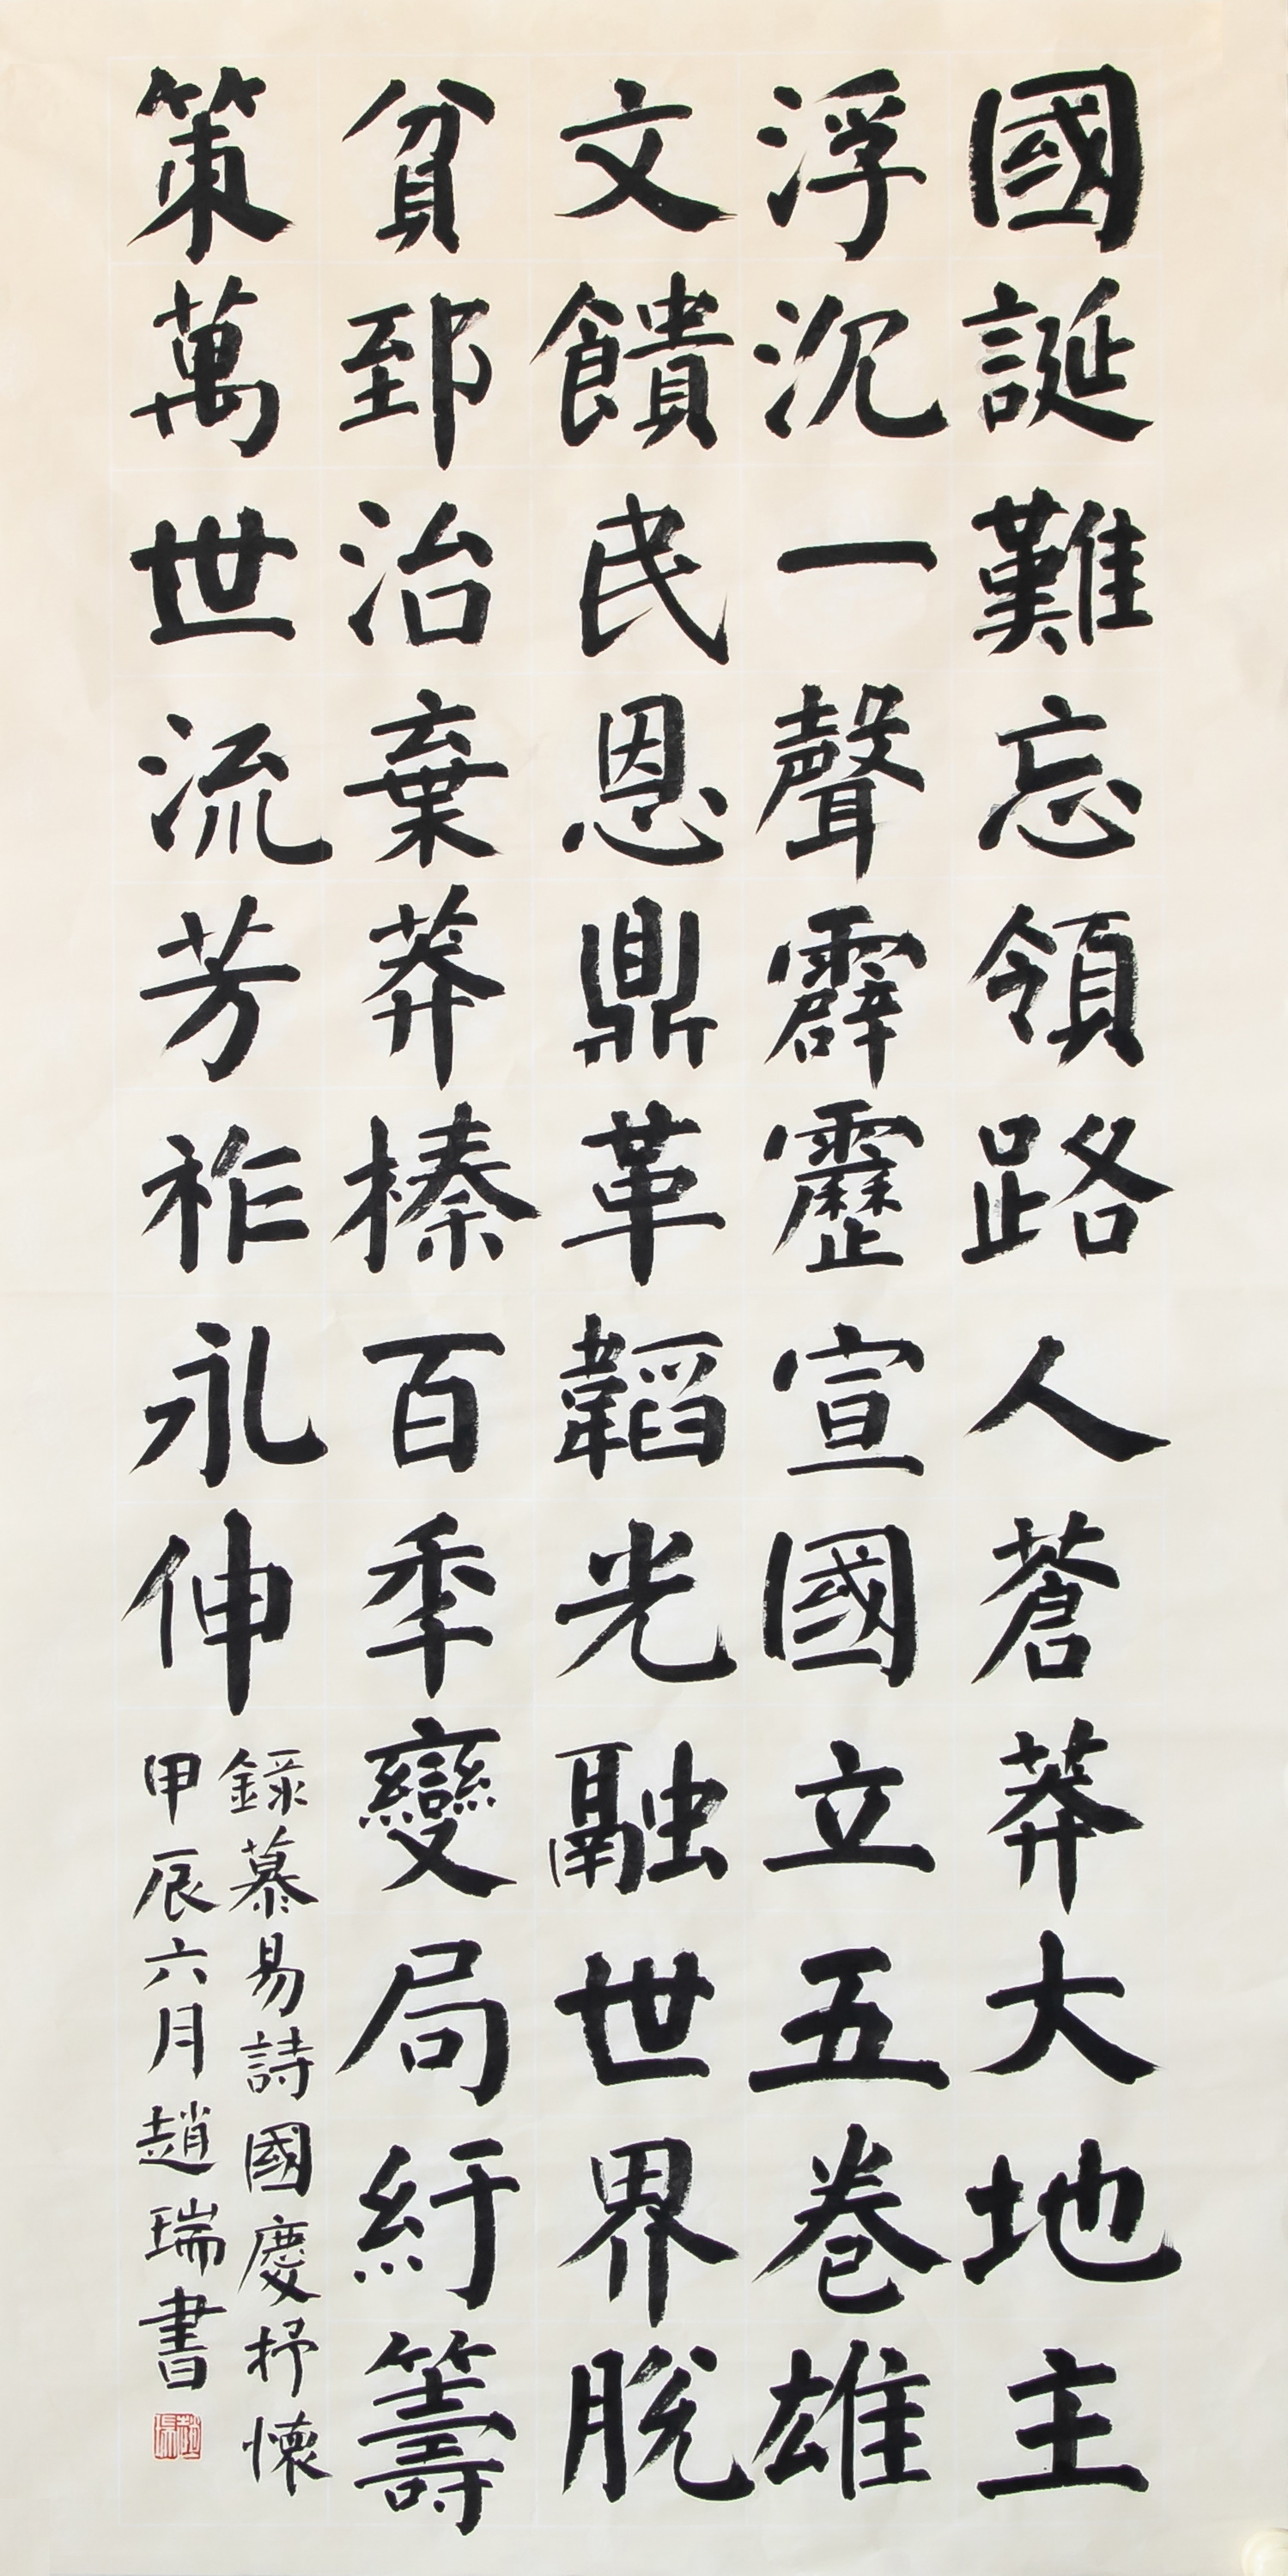 國誕難忘領路人蒼莽大地主
浮沉一聲霹靂宣國立五卷雄
文饋民恩鼎革韜光融世界脫
貧郅治棄莽榛百季變局紆籌
策萬世流芳祚永伸
錄慕易詩國慶抒懷
甲辰六月趙瑞書